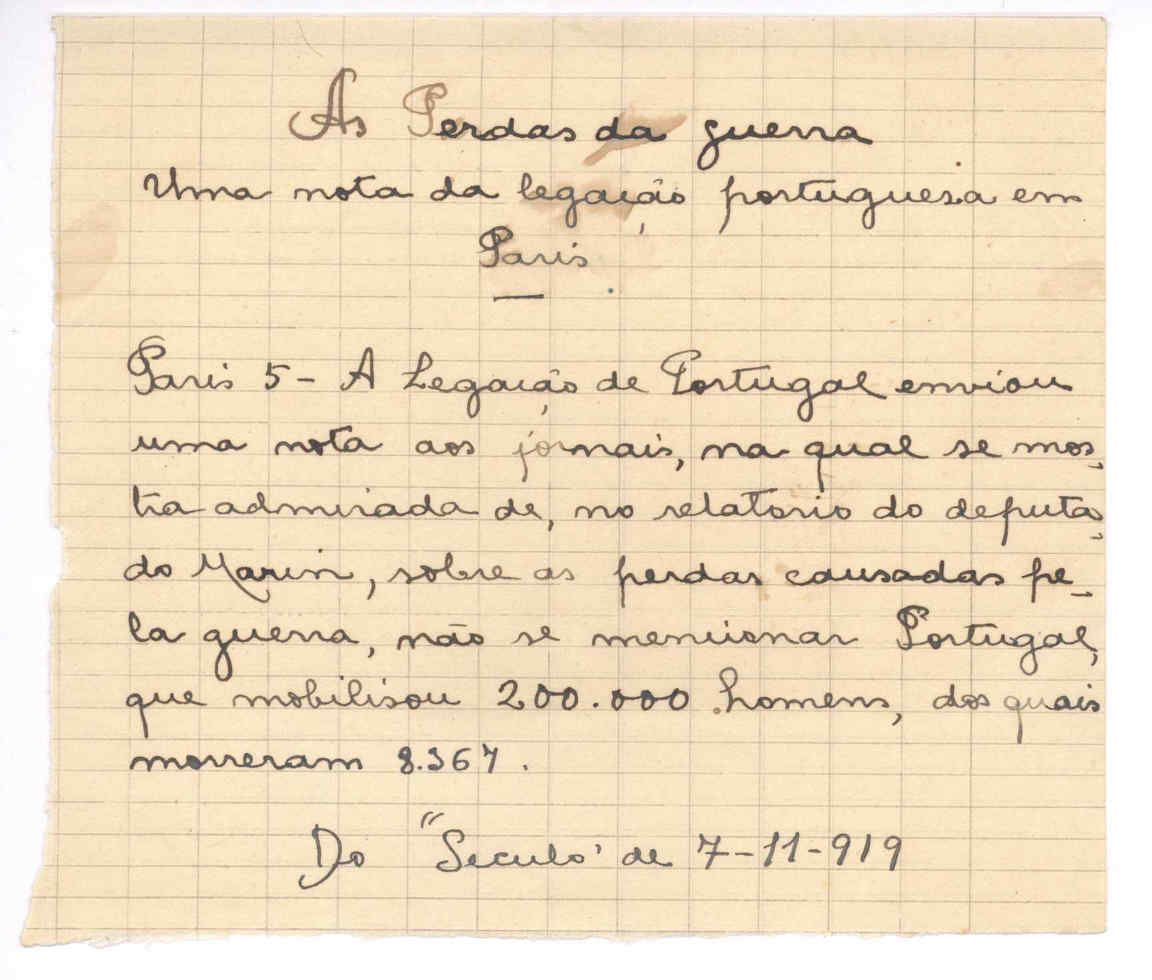 As Perdas da guerra
Uma nota da legação portuguesa em
Paris
Paris 5 - A Legação de Portugal enviou
uma nota aos jornais, na qual se mos-
tra admirada de, no relatorio do deputa-
do Marin, sobre as perdas causadas pe-
la guerra, não se mencionar Portugal,
que mobilisou 200.000 homens, dos quais
morreram 8.367.
Do "Seculo" de 7-11-919